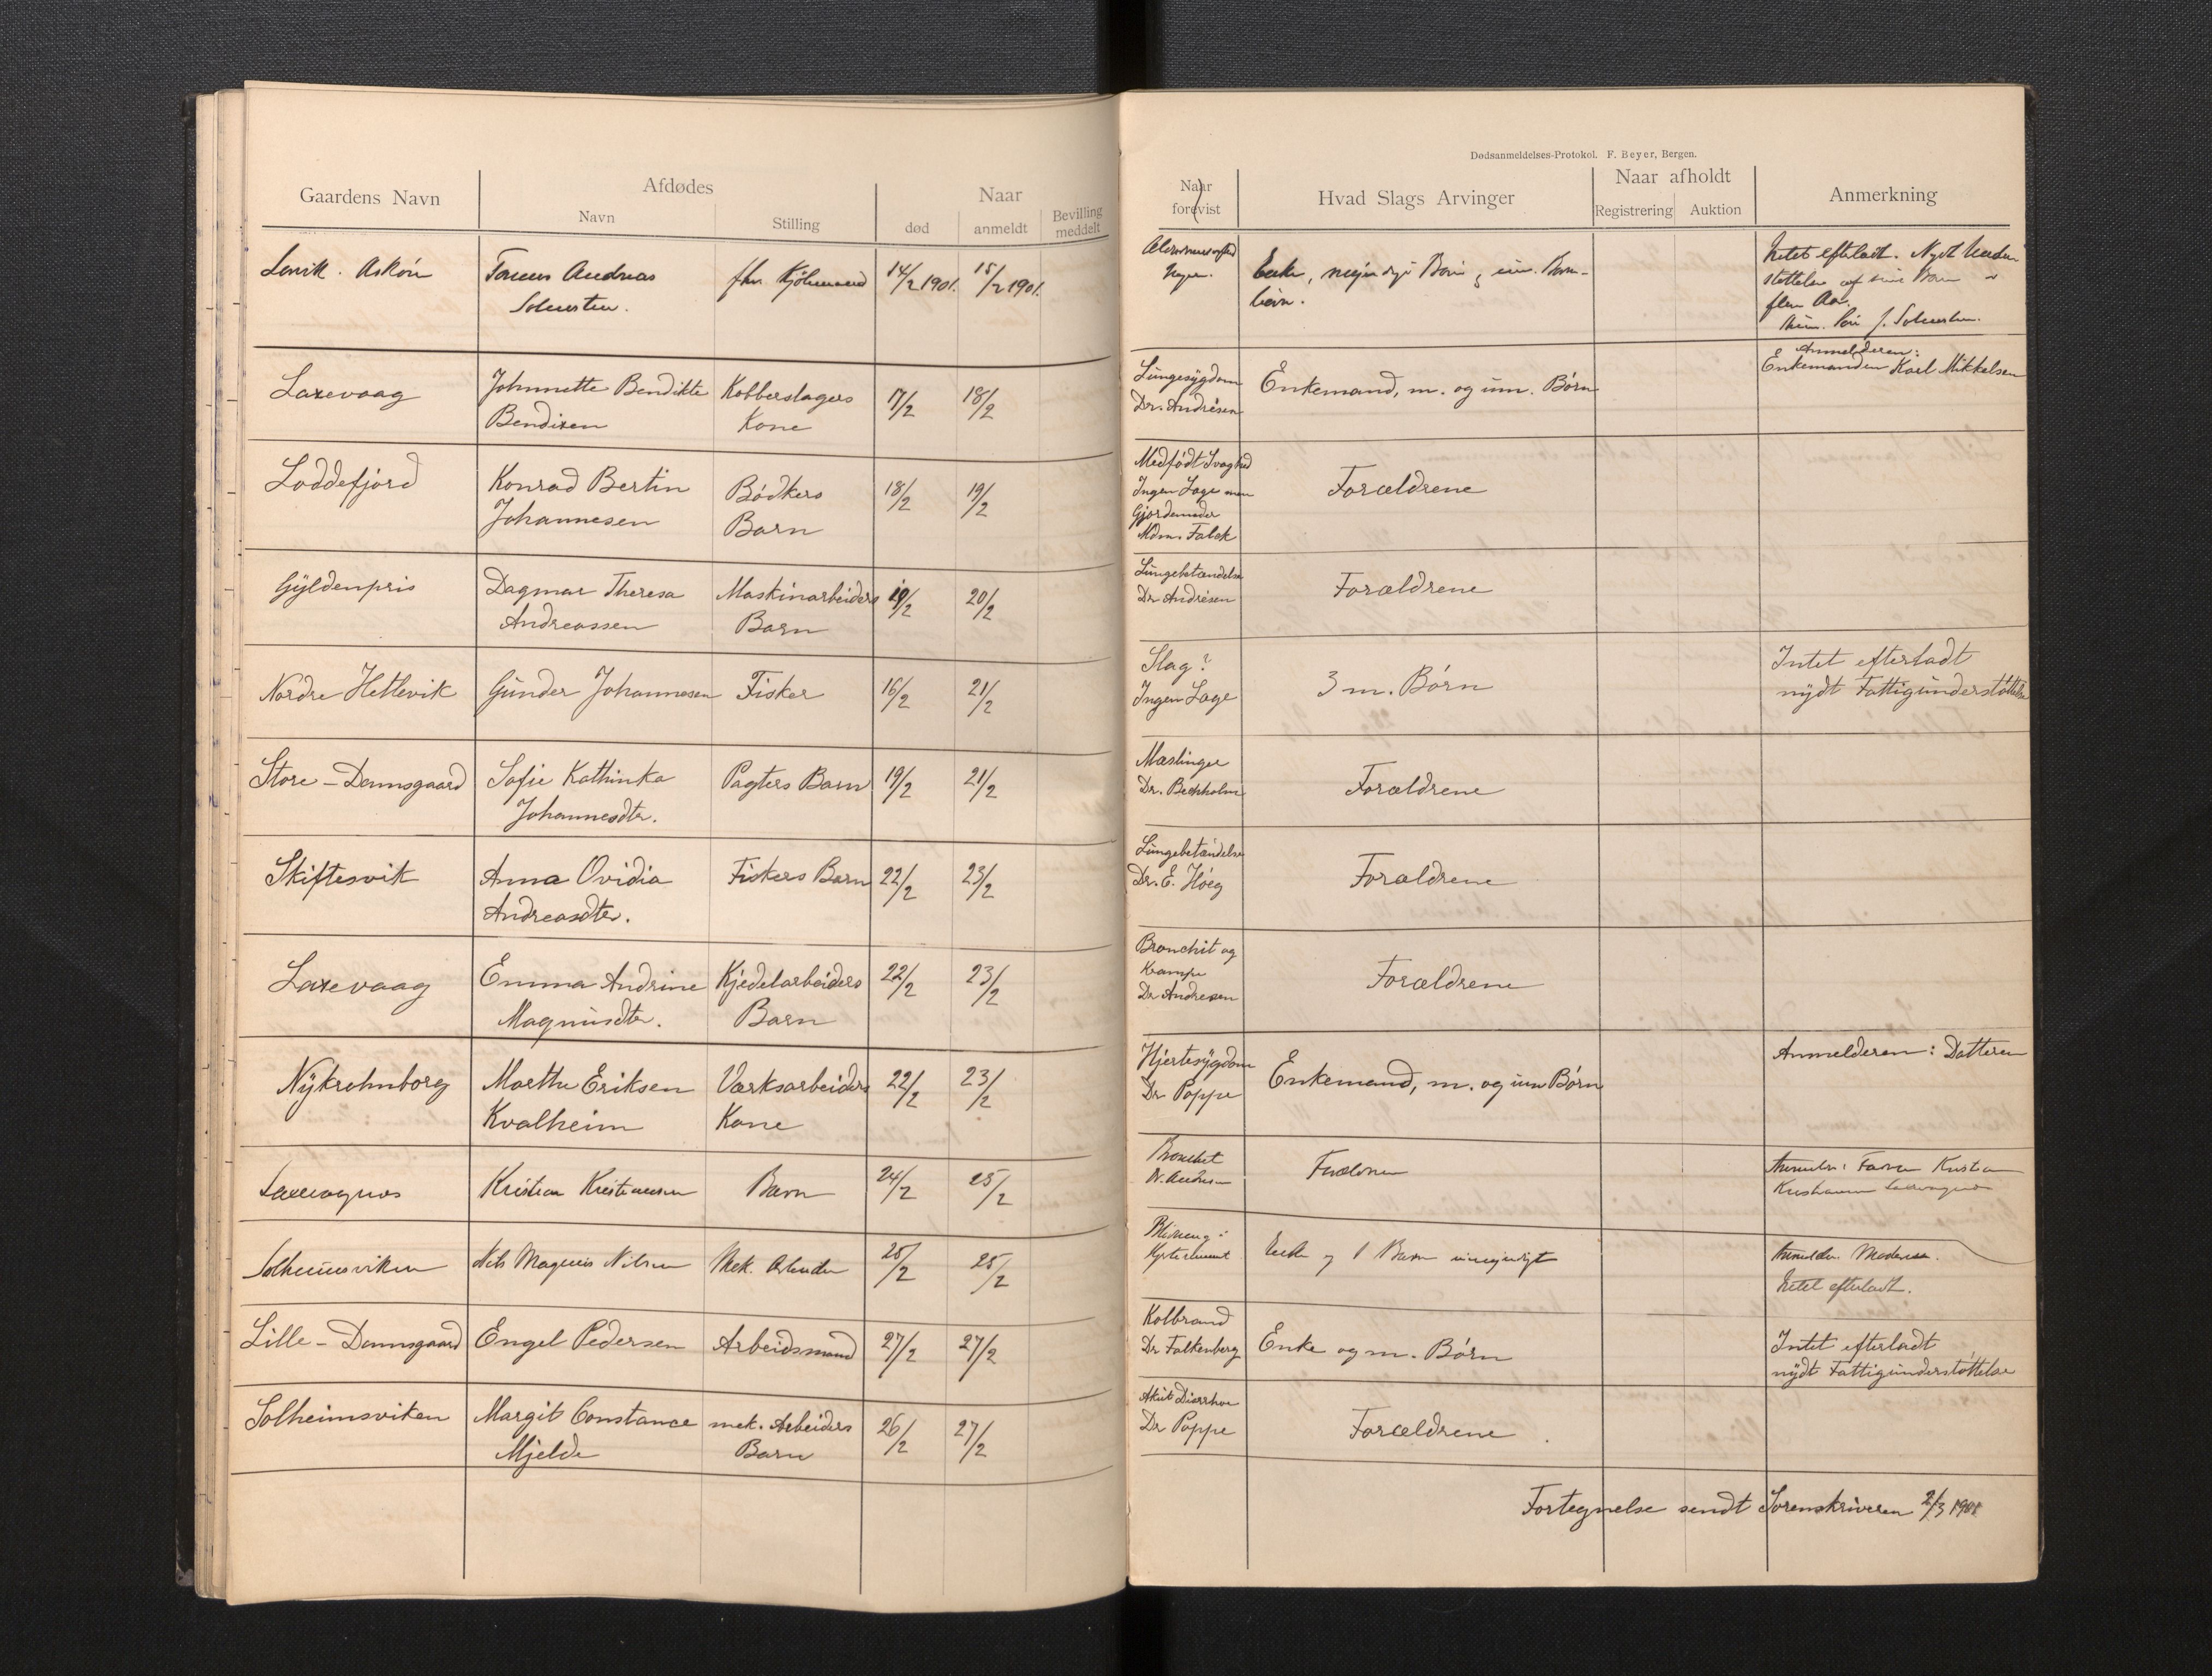 Dødsanmeldelses-Protokol. F. Beyer, Bergen.
Gaardens Navn
Afdødes
Navn
Stilling
Naar
død
anmeldt
Bevilling
meddelt
Naar
forevist
Hvad Slags Arvinger
Naar afholdt
Registrering
Auktion
Anmerkning
Askøn
Andreas
14/2 1901.
15/2 1901.
Enke,
Intet efterladt. Nydt
flere Aar.
Laxevaag
Johnnette Bendikte
Bendixen
Kobberslagers
Kone
17/2
18/2
Lungesygdom
Dr. Andrésen
Enkemand, m. og um. Børn
Anmelderen:
Enkemanden Karl Mikkelsen
Loddefjord
Konrad Bertin
Johannesen
Bødkers
Barn
18/2
19/2
Medfødt Svaghed
Ingen Læge men
Gjordemoder
Mdm. Falck
Forældrene
Gyldenpris
Dagmar Theresa
Andreassen
Maskinarbeiders
Barn
19/2
20/2
Lungebetændelse
Dr Andrésen
Forældrene
Nordre Hetlevik
Gunder Johannesen
Fisker
16/2
21/2
Slag?
Ingen Læge
3 m. Børn
Intet efterladt
nydt Fattigunderstøttelse
Store-Damsgaard
Sofie Kathinka
Johannesdtr.
Pagters Barn
19/2
21/2
Mæslinger
Dr.
Forældrene
Skiftesvik
Anna Ovidia
Andreasdtr.
Fiskers Barn
22/2
23/2
Lungebetændelse
Dr. E. Høeg
Forældrene
Laxevaag
Emma Andrine
Magnusdtr.
Kjedelarbeiders
Barn
22/2
23/2
Bronchit og
Krampe
Dr Andresen
Forældrene
Nykrohnborg
Marthe Eriksen
Kvalheim
Værksarbeiders
Kone
22/2
23/2
Hjertesygdom
Dr Poppe
Enkemand, m. og um Børn
Anmelderen: Datteren
Kristian Kristiansen
Barn
24/2
25/2
Bronchit
Dr. Andresen
Forældrene
Solheimsviken
Nils Magnus Nilsen
Mek. Arbeider
25/2
25/2
Enke og 1 Barn umyndigt
Intet efterladt.
Lille-Damsgaard
Engel Pedersen
Arbeidsmand
27/2
27/2
Kolbrand
Dr Falkenberg
Enke og m. Børn
Intet efterladt
nydt Fattigunderstøttelse
Solheimsviken
Margit Constance
Mjelde
mek. Arbeiders
Barn
26/2
27/2
Akut Diarrhoe
Dr Poppe
Forældrene
Fortegnelse sendt Sorenskriveren 2/3 1901